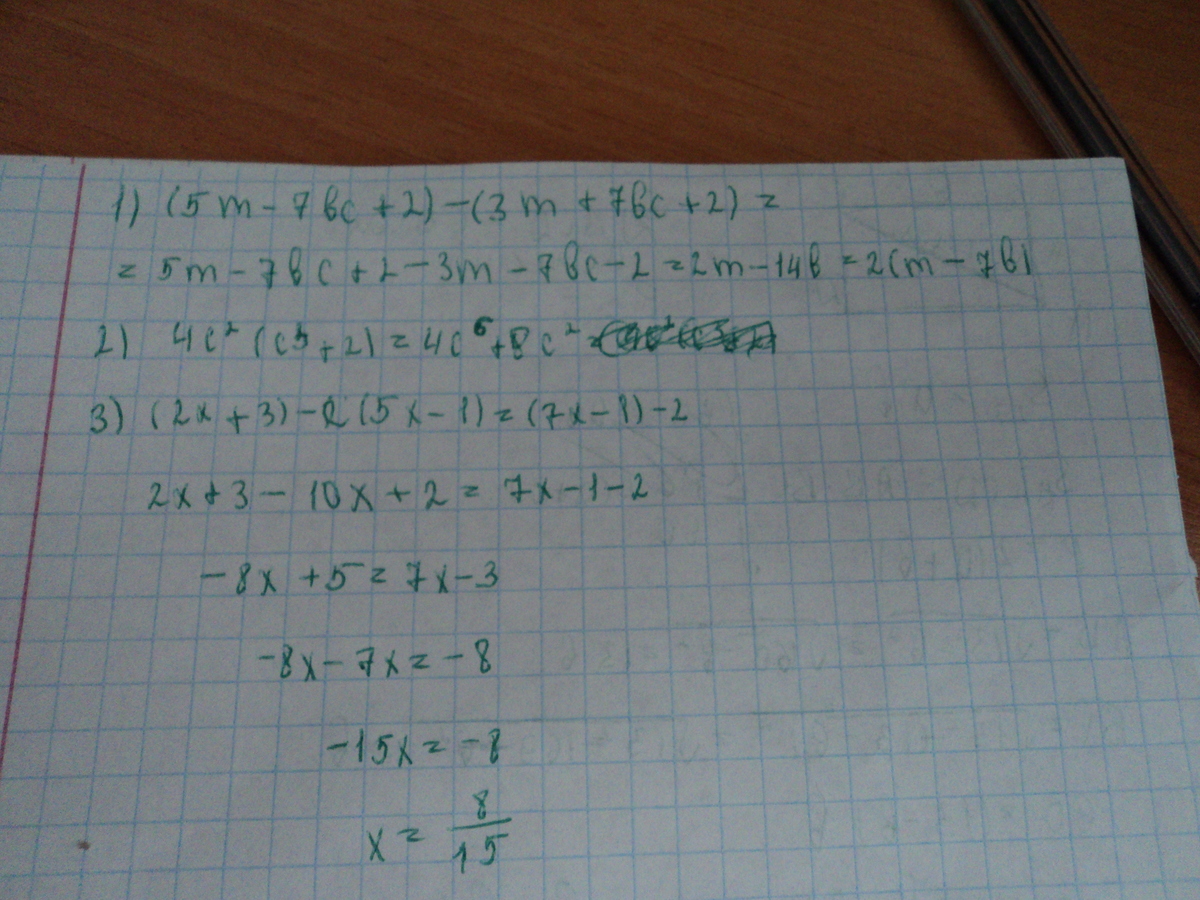 1) (5m - 7вс + 2) - (3m + 7вс + 2) =
= 5m - 7вс + 2 - 3m - 7вс - 2 = 2m - 14в = 2(m - 7в)
2) 4c² (c³ + 2) = 4c⁶ + 8c²
3) (2x + 3) - 2 (5x - 1) = (7x - 1) - 2
2x + 3 - 10x + 2 = 7x - 1 - 2
-8x + 5 = 7x - 3
-8x - 7x = -8
-15x = -8
x = 8/15